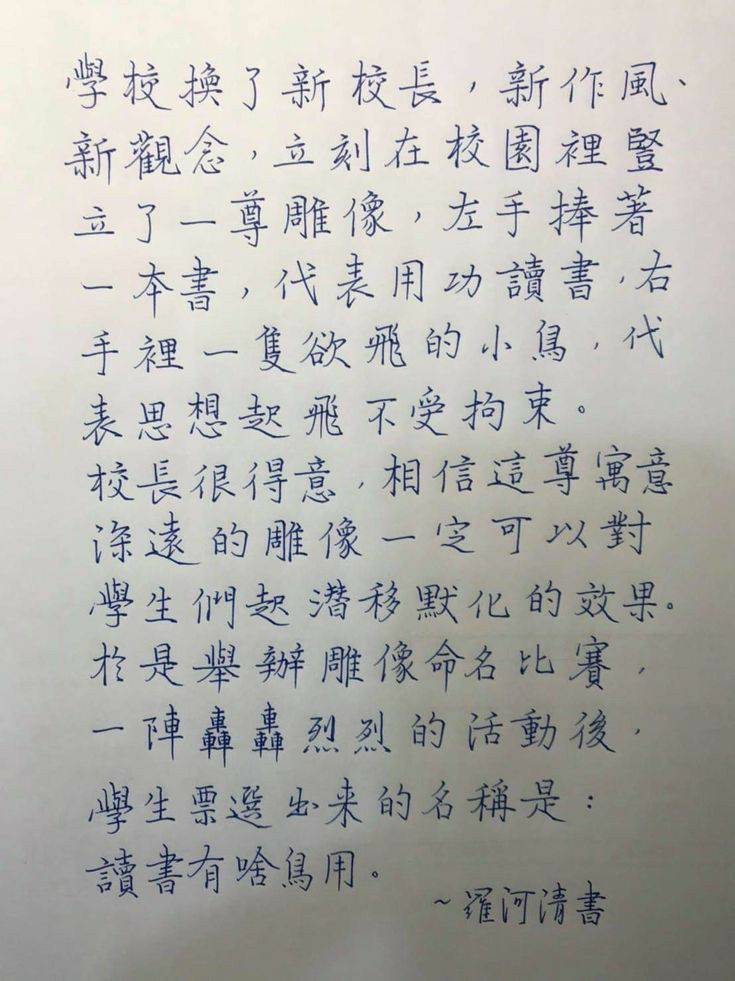 學校換了新校長，新作風、
新觀念，立刻在校園裡豎
立了一尊雕像，左手捧著
一本書，代表用功讀書，右
手裡一隻欲飛的小鳥，代
表思想起飛不受拘束。
校長很得意，相信這尊寓意
深遠的雕像一定可以對
學生們起潛移默化的效果。
於是舉辦雕像命名比賽，
一陣轟轟烈烈的活動後，
學生票選出来的名稱是：
讀書有啥鳥用。
~羅河清書